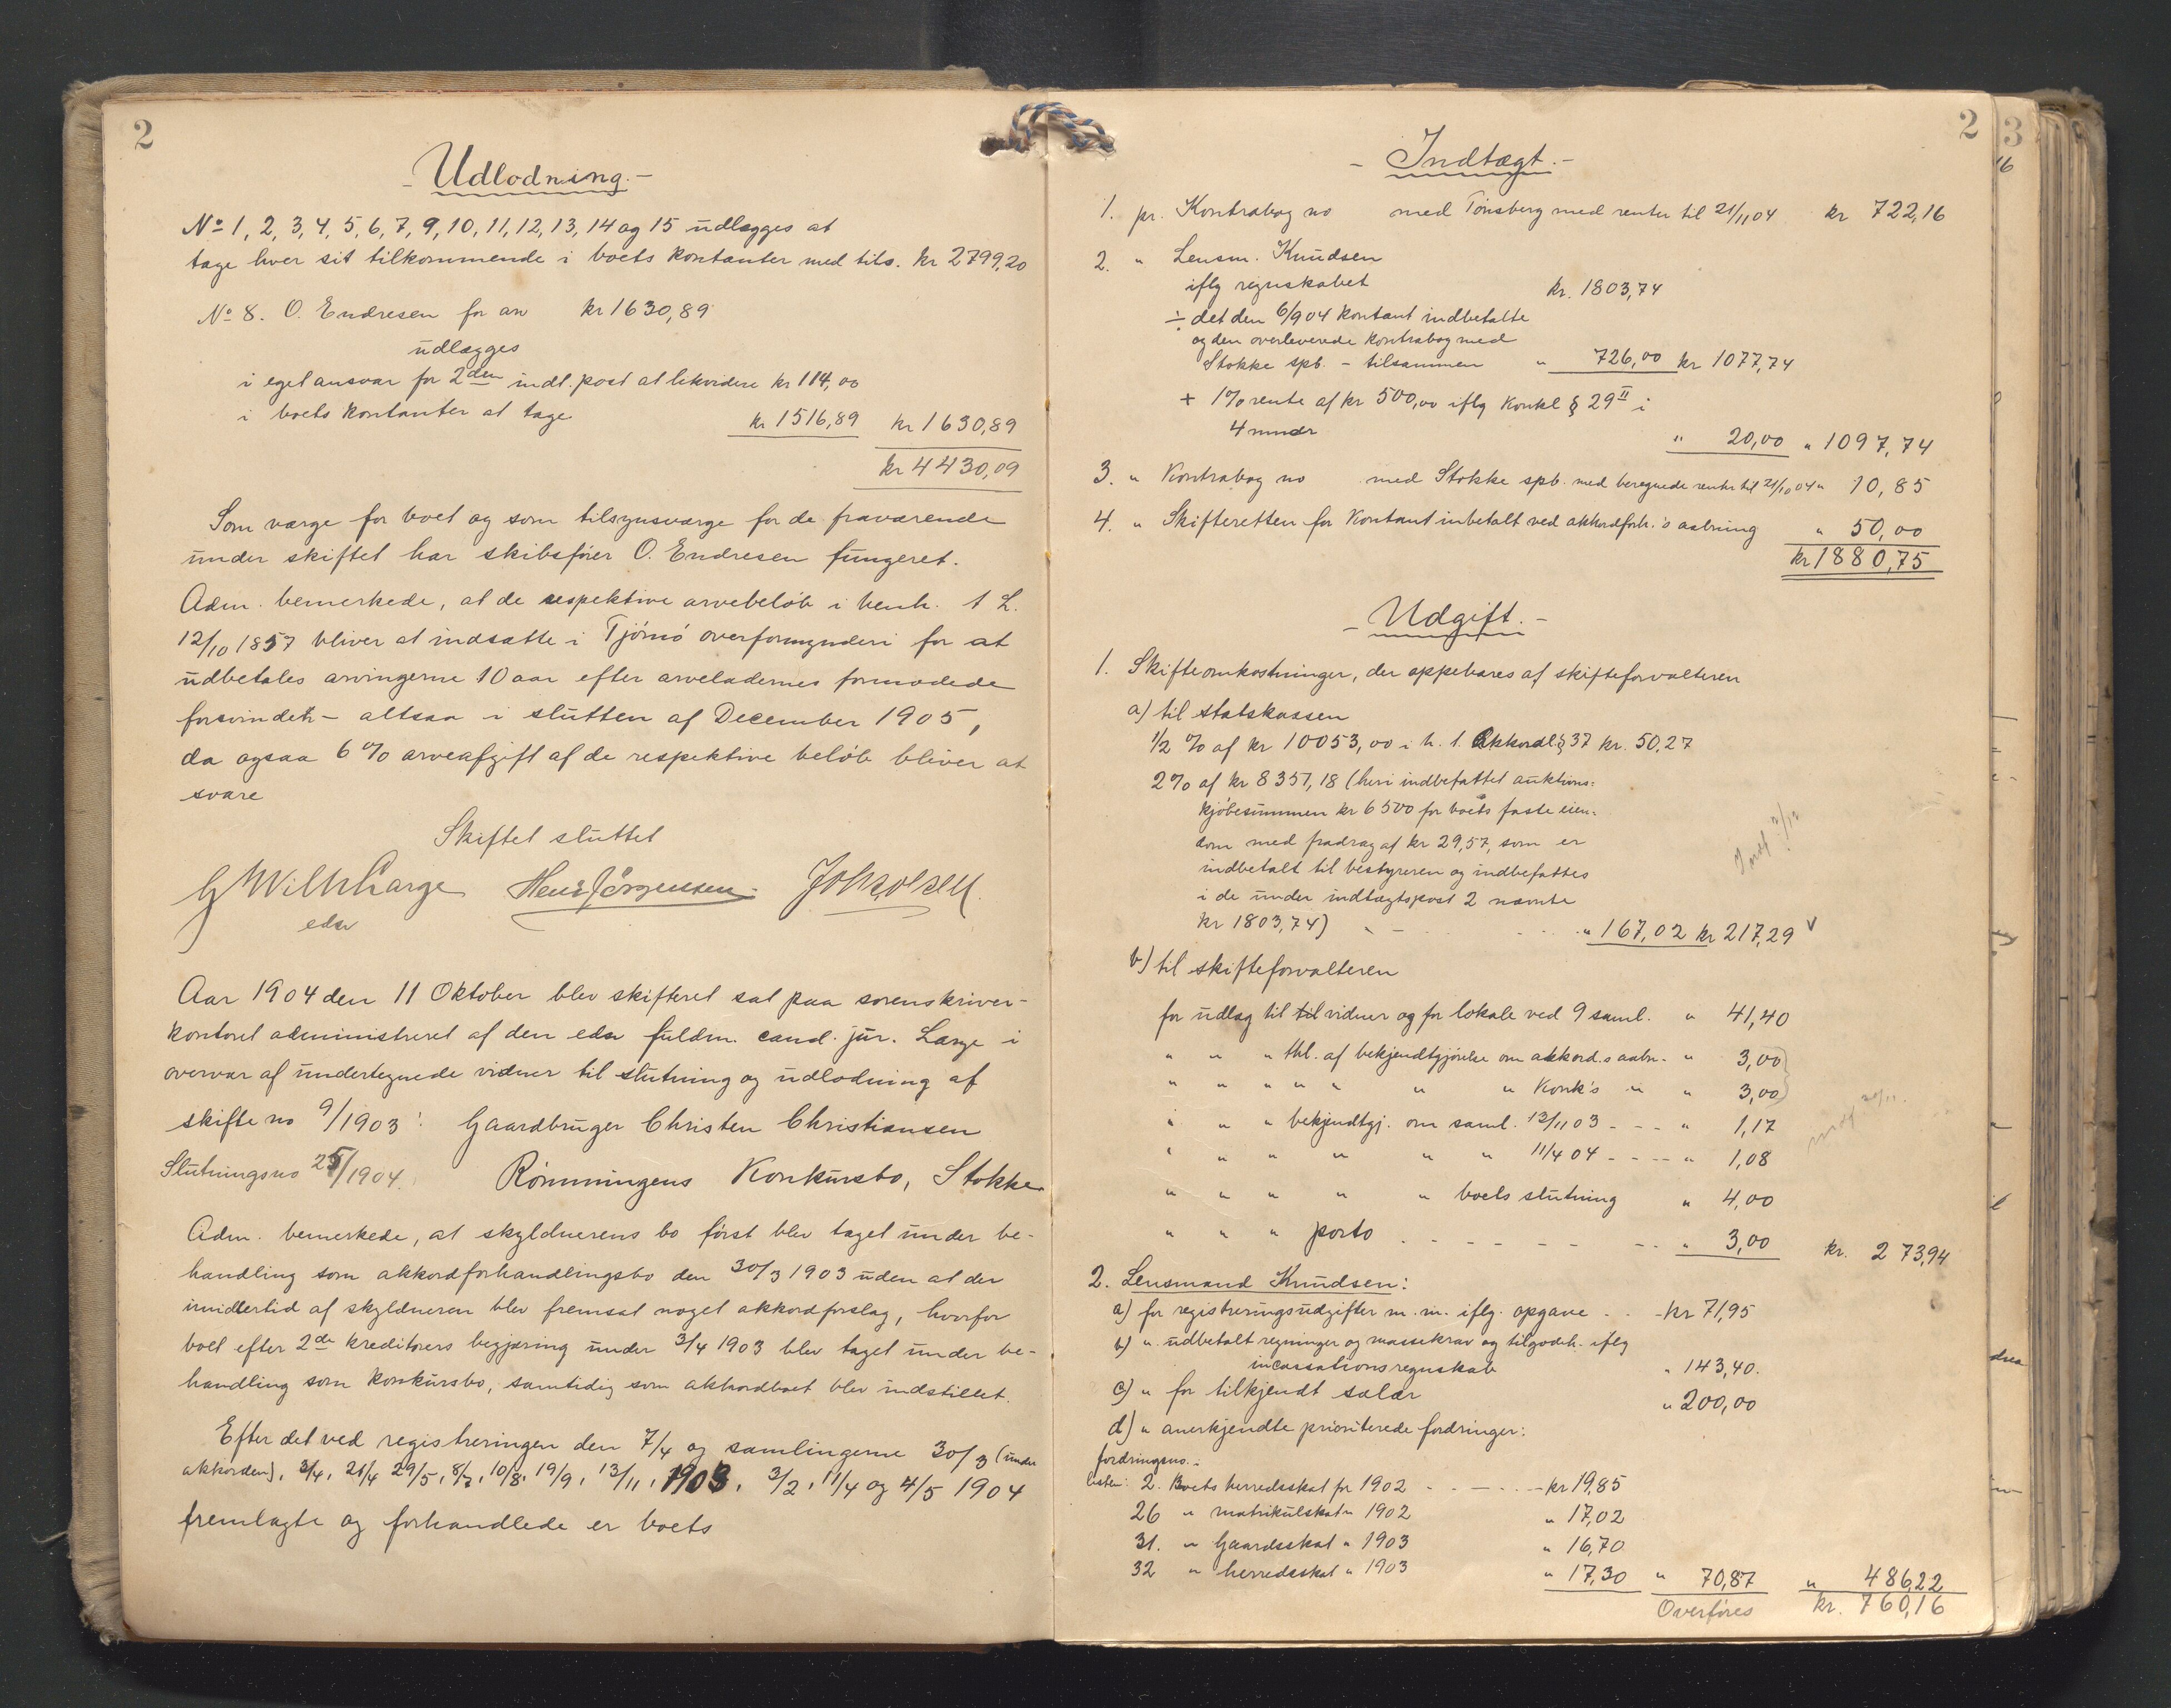 2
- Udlodning. -
No 1, 2, 3, 4, 5, 6, 7, 9, 10, 11, 12, 13, 14 og 15 udlægges at
tage hver sit tilkommende i boets kontanter med tils. kr 2799,20
No 8. O. Endresen for arv kr 1630,89
udlægges
i eget ansvar for 2den indt. post at likvidere kr 114,00
i boets kontanter at tage kr 1516,89 kr 1630,89
kr 4430,09
Som værge for boet og som tilsynsværge for de fraværende
under skiftet har skibsfører O. Endresen fungeret.
Adm. bemerkede, at de respektive arvebeløb i henh. t L.
12/10 1857 bliver at indsætte i Tjømø overformynderi for at
udbetales arvingerne 10 aar efter arveladernes formodede
forsvinden - altsaa i slutten af December 1905,
da ogsaa 6 % arveafgift af de respektive beløb bliver at
svare
Skiftet sluttet
G Wilh Large Hans Jörgensen. Joh. Olsen
edsv
Aar 1904 den 11 Oktober blev skifteret sat paa sorenskriver-
kontoret administreret af den edsv fuldm. cand. jur. Large i
overvær af undertegnede vidner til slutning og udlodning af
skifte no 9/1903: Gaardbruger Christen Christiansen
Slutningsno 25/1904. Rønningens Konkursbo, Stokke
Adm. bemerkede, at skyldnerens bo først blev taget under be-
handling som akkordforhandlingsbo den 30/3 1903 uden at der
imidlertid af skyldneren blev fremsat noget akkordforslag, hvorfor
boet efter 2de kreditorers begjæring under 3/4 1903 blev taget under be-
handling som konkursbo, samtidig som akkordboet blev indstillet.
Efter det ved registreringen den 7/4 og samlingerne 30/3 (under
akkorden), 3/4, 21/4 29/5, 8/7, 10/8, 19/9, 13/11, 1903, 3/2, 11/4 og 4/5 1904
fremlagte og forhandlede er boets
2
3
- Indtægt. -
1. pr. Kontrabog no med Tønsberg med renter til 21/11 04 kr 722,16
2. " Lensm. Knudsen
iflg regnskabet kr. 1803,74
÷ det den 6/9 04 kontant indbetalte
og den overleverede kontrabog med
Stokke spb. - tilsammen " 726,00 kr 1077,74
+ 1% rente af kr 500,00 iflg Konkl § 29 II i
4 mndr " 20,00 " 1097,74
3. " Kontrabog no med Stokke spb. med beregnede renter til 21/10 04 " 10,85
4. " Skifteretten for Kontant inbetalt ved akkordforh.'s aabning " 50,00
kr 1880,75
- Udgift. -
1. Skifteomkostninger, der oppebæres af skifteforvalteren
a) til statskassen
1/2 % af kr 10053,00 i h. t. Akkordl. § 37 kr. 50,27
2% af kr 8351,18 (heri indbefattet auktions=
kjøbesummen kr 6500 for boets faste eien=
dom med fradrag af kr 29,57, som er
indbetalt til bestyreren og indbefattes
i de under indtægtspost 2 nævnte
kr 1803,74) " 167,02 kr 217,29 v
b) til skifteforvalteren
for udlæg til til vidner og for lokale ved 9 saml. " 41,40
" " " thl. af bekjendtgjørelse om akkord.s aabn. " 3,00
" " " " " " " Konk's " " 3,00
" " " bekjendtgj. om saml. 13/11 03 - - - " 1,17
" " " " " " 11/4 04 - - - - " 1,08
" " " " " boets slutning " 4,00
" " " porto " 3,00 kr. 273,94
2. Lensmand Knudsen:
a) for registreringsudgifter m. m. iflg. opgave - kr 71,95
b) " udbetalt regninger og massekrav og tilgodeh. iflg
incassationsregnskab " 143,40.
c) " for tilkjendt salær " 200,00
d) " anerkjendte prioriterede fordringer:
fordringsno.=
listen: 2. Boets herredsskat for 1902 - kr 19,85
26 " matrikulskat " 1902 " 17,02
31. " Gaardsskat " 1903 " 16,70
32 " herredsskat " 1903 " 17,30 " 70,87 " 486,22
Overføres kr. 760,16